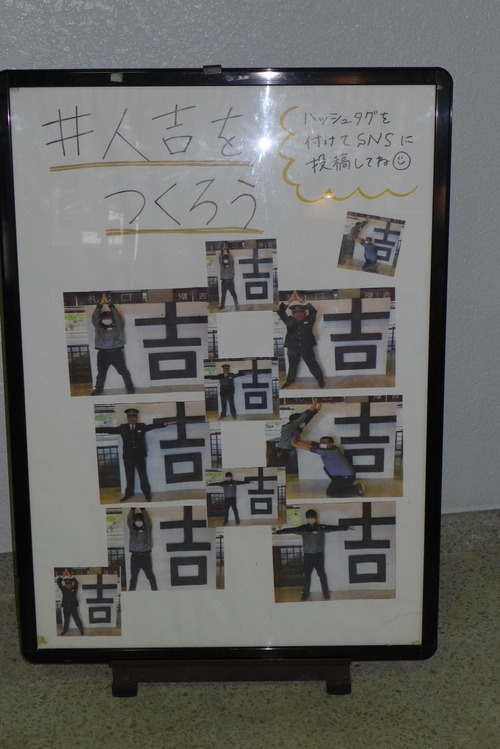 #人吉を
つくろう
ハッシュタグを
付けてSNSに
投稿してね
吉
吉
吉
吉
吉
吉
吉
吉
吉
吉
吉
吉